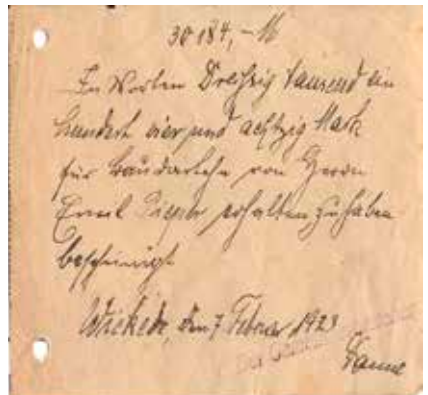 30184,-M
In Worten Dreißig tausend ein
hundert vier und achtzig Mark
für Baudarlehn von Herrn
Emil Pieper erhalten zu haben
bescheinigt
Wickede, den 7 Februar 1923